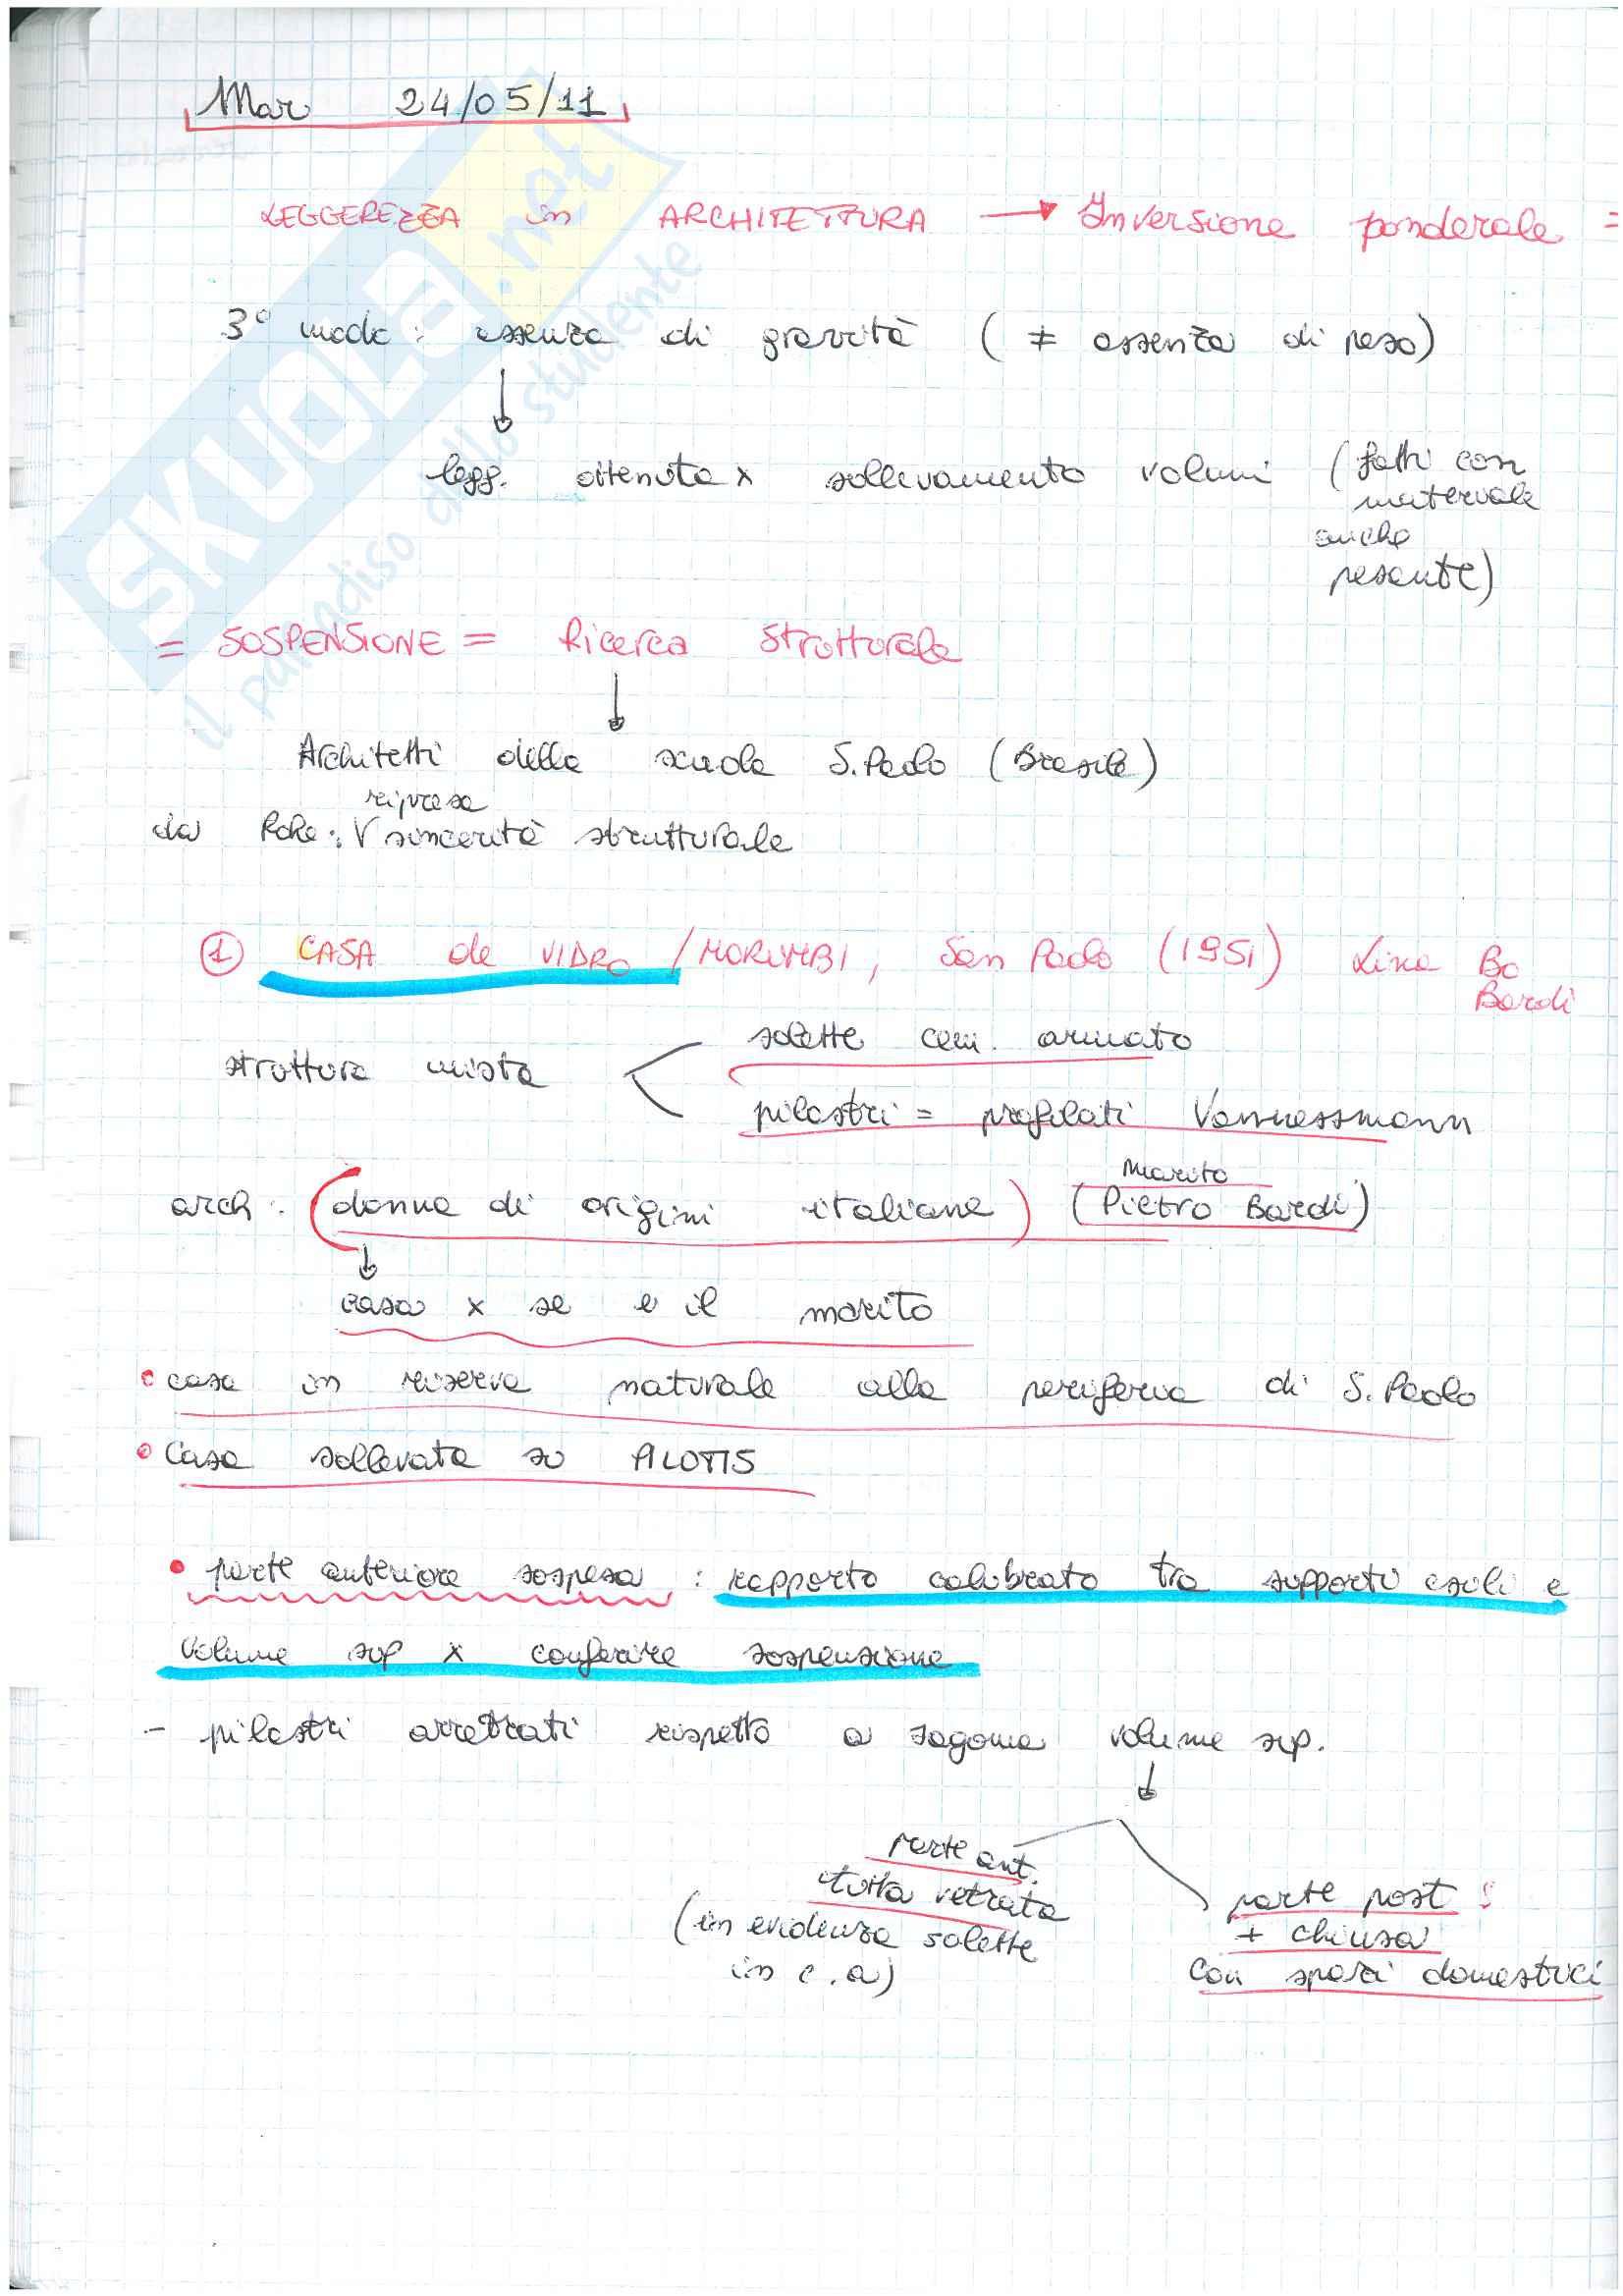 Mar 24/05/11
LEGGEREZZA in ARCHITETTURA → Inversione ponderale =
3° modo: assenza di gravità ( ≠ assenza di peso)
↓
legg. ottenuta x sollevamento volumi (fatti con
materiale
anche
pesante)
= SOSPENSIONE = Ricerca Strutturale
↓
Architetti della scuola S. Paolo (Brasile)
ripresa
da : V sincerità strutturale
① CASA de VIDRO / MORUMBI, San Paolo (1951) Lina Bo
Bardi
solette cem. armato
struttura mista
pilastri = profilati Vannessmann
marito
arch: (donna di origini italiane) (Pietro Bardi)
↓
casa x se e il marito
• casa in riserva naturale alla periferia di S. Paolo
• Casa sollevata su PILOTIS
• parte anteriore sospesa : rapporto calibrato tra supporti esili e
volume sup x conferire sospensione
- pilastri arretrati rispetto a sagoma volume sup.
↓
parte ant.
tutta vetrata
(in evidenza solette
in c.a)
parte post :
+ chiusa
con spazi domestici
SKUOLA.net
il paradiso dello studente